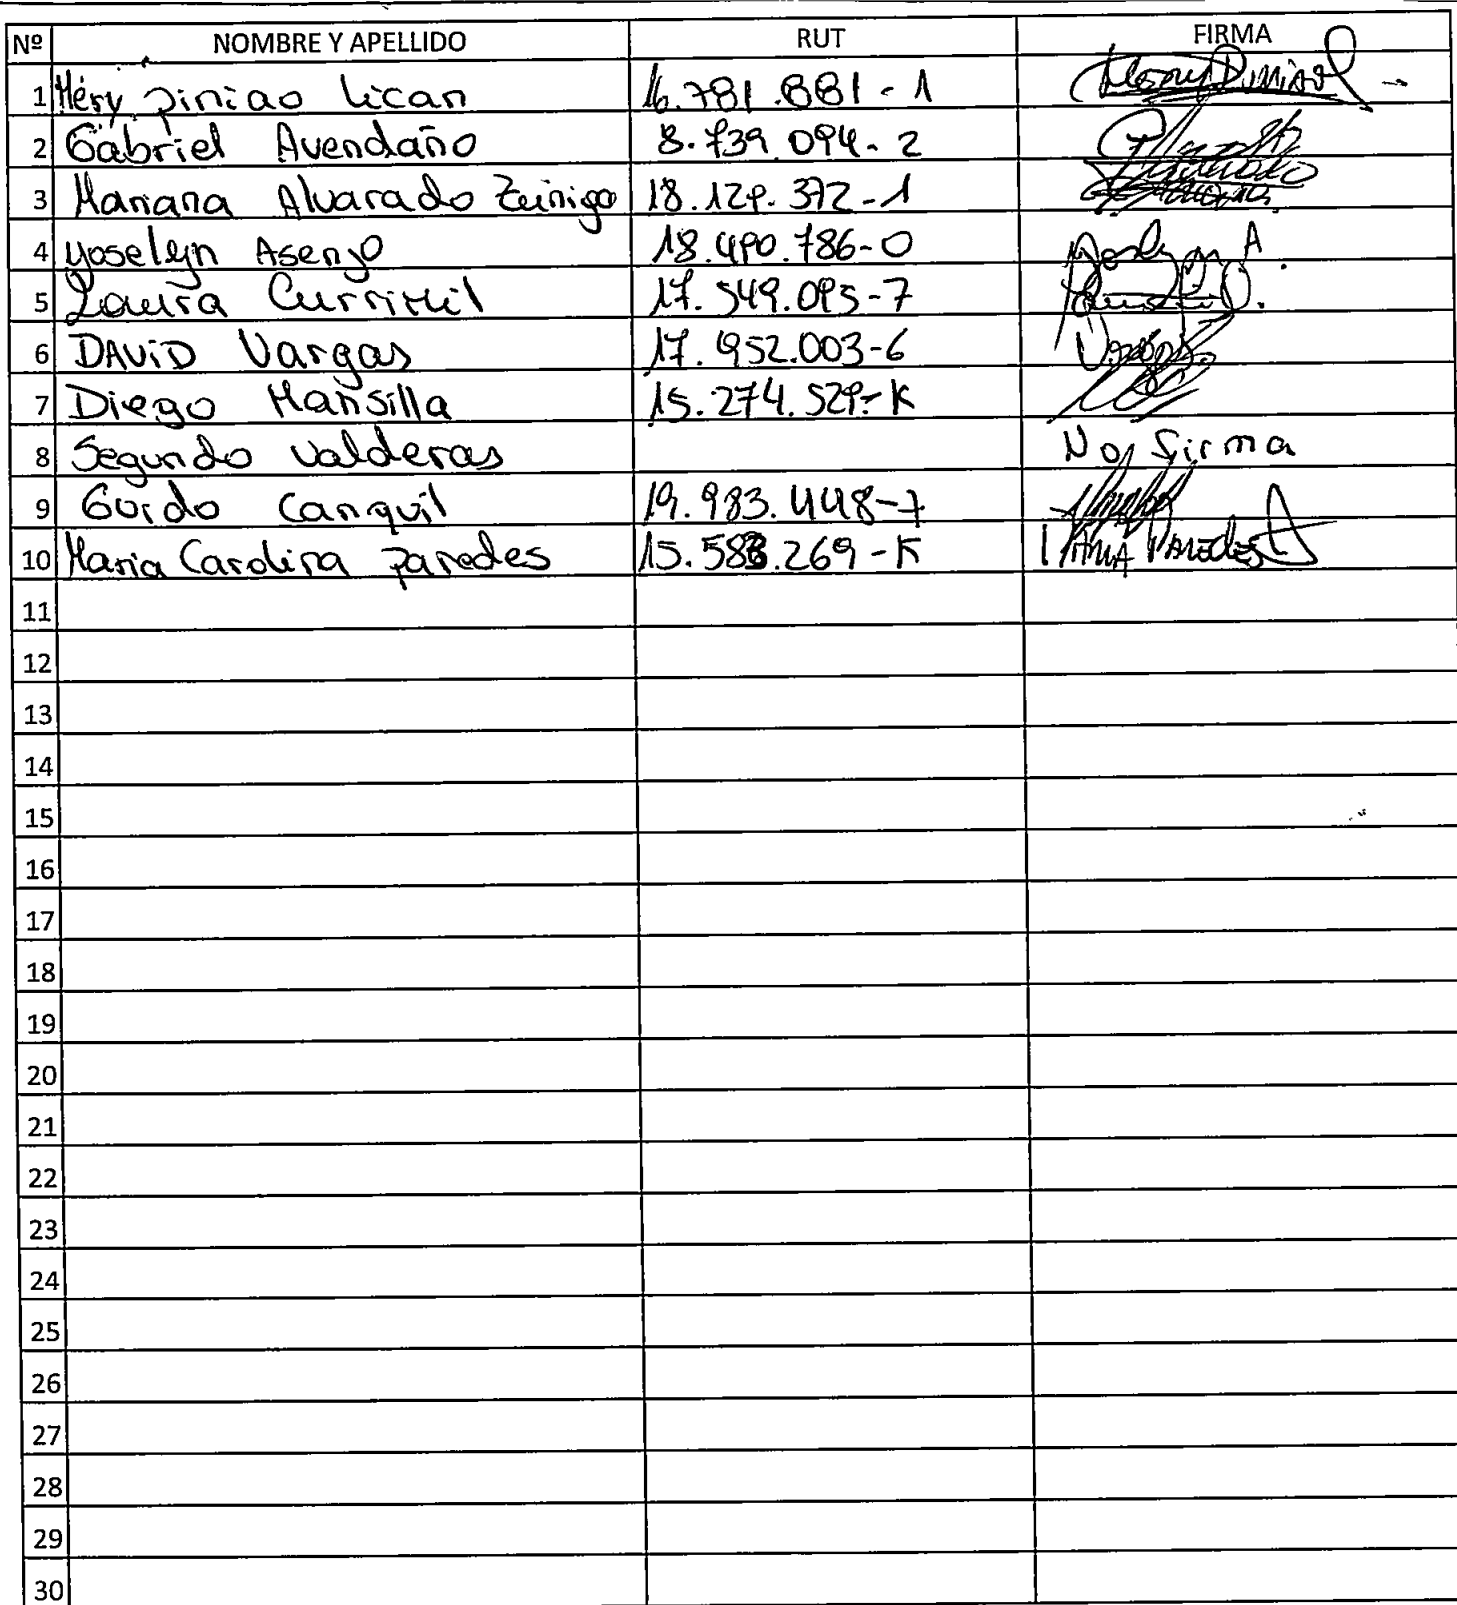 Nº NOMBRE Y APELLIDO RUT FIRMA
1 Méry Piniao Lican 16.781.881-1
2 Gabriel Avendaño 8.739.094-2
3 Mariana Alvarado Zuñiga 18.129.372-1
4 Yoselyn Asenjo 18.490.786-0
5 Laura Currieil 17.549.095-7
6 DAViD Vargas 17.952.003-6
7 Diego Mansilla 15.274.529-K
8 Segundo Valderas No firma
9 Guido Canquil 19.983.448-7
10 Maria Carolina Paredes 15.583.269-K
11
12
13
14
15
16
17
18
19
20
21
22
23
24
25
26
27
28
29
30